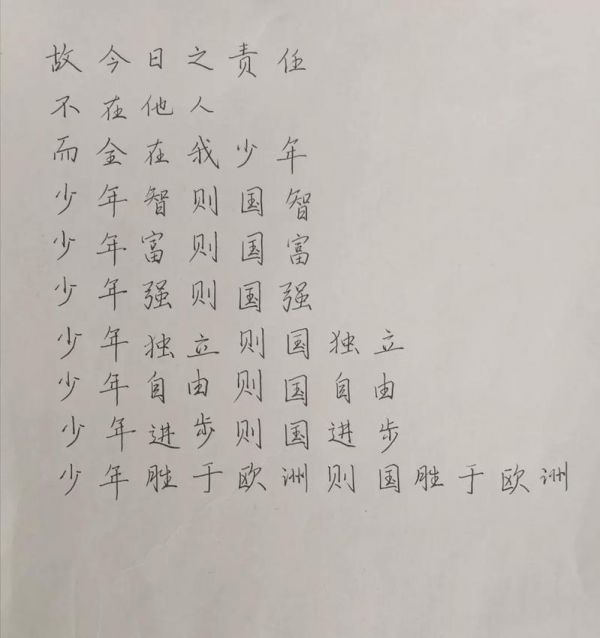 故今日之责任
不在他人
而全在我少年
少年智则国智
少年富则国富
少年强则国强
少年独立则国独立
少年自由则国自由
少年进步则国进步
少年胜于欧洲则国胜于欧洲